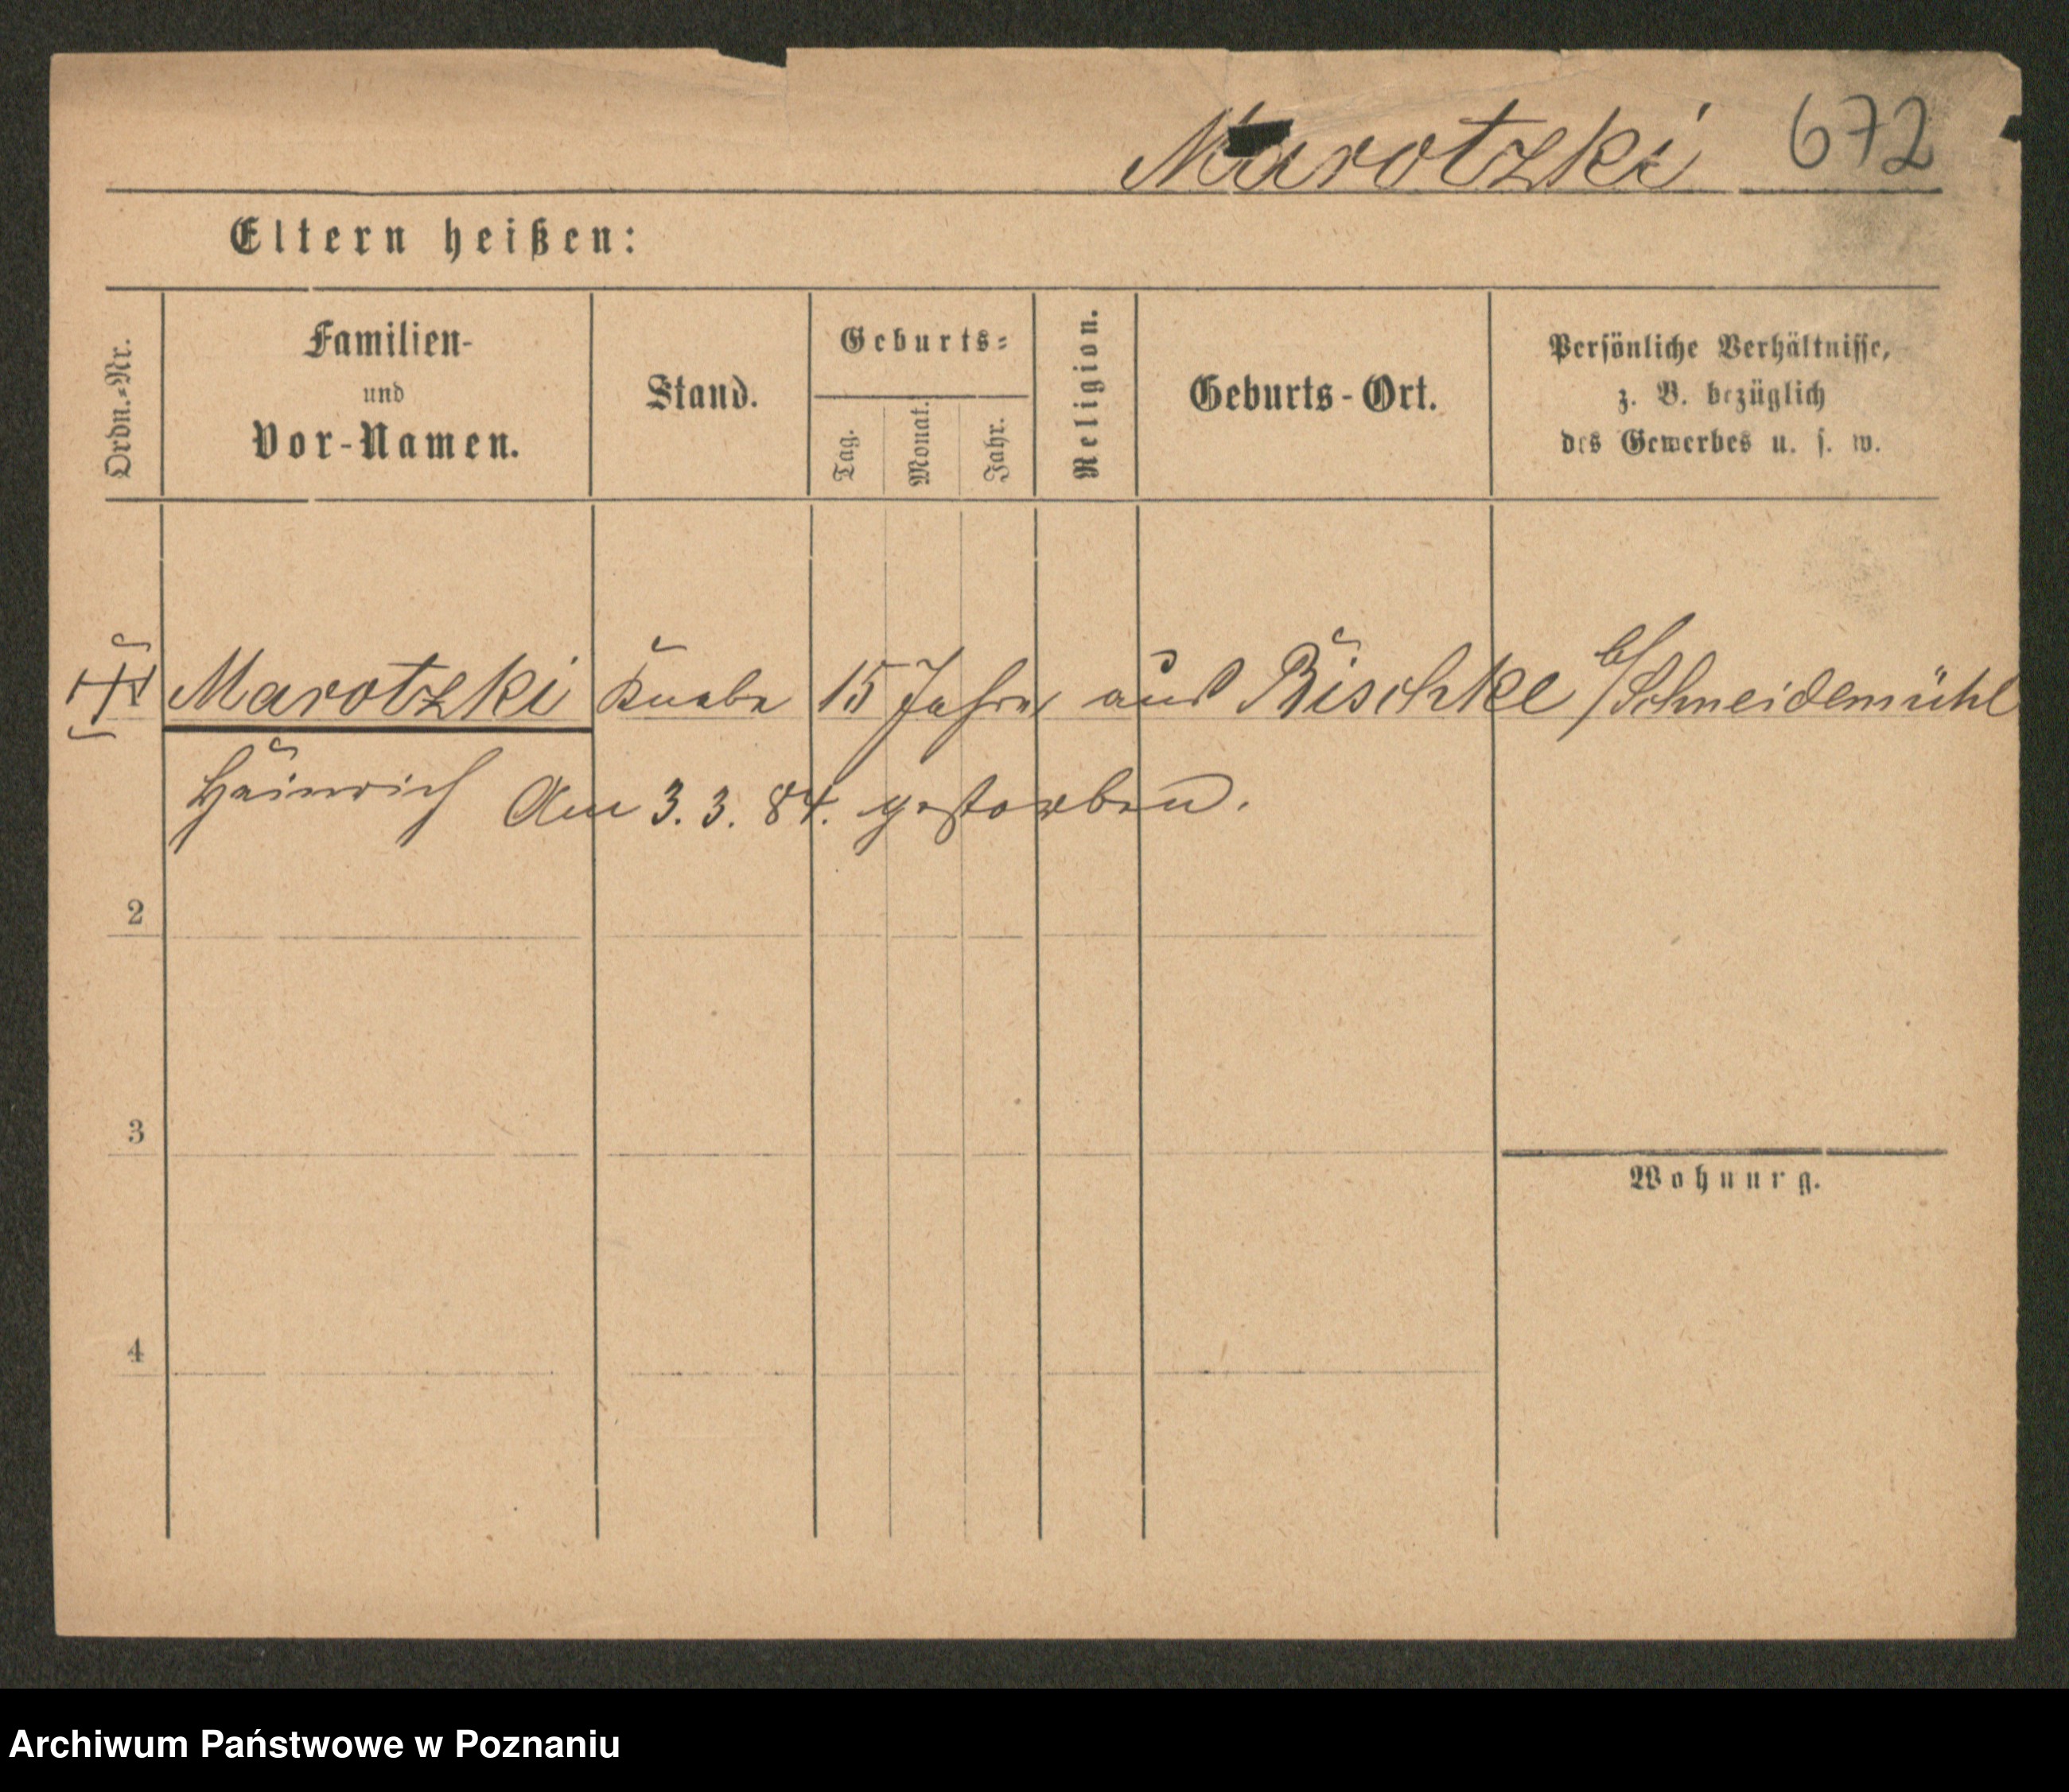 Marotzki 672
Eltern heißen:
Ordn.-Nr.
Familien-
und
Vor-Namen.
Stand.
Geburts-
Tag.
Monat.
Jahr.
Religion.
Geburts-Ort.
Persönliche Verhältnisse,
z. B. bezüglich
des Gewerbes u. s. w.
Marotzki Knabe 15 Jahre aus Bischke b/Schneidemühl
Heinrich Am 3. 3. 84. gestorben.
2
3
Wohnurg.
4
Archiwum Państwowe w Poznaniu